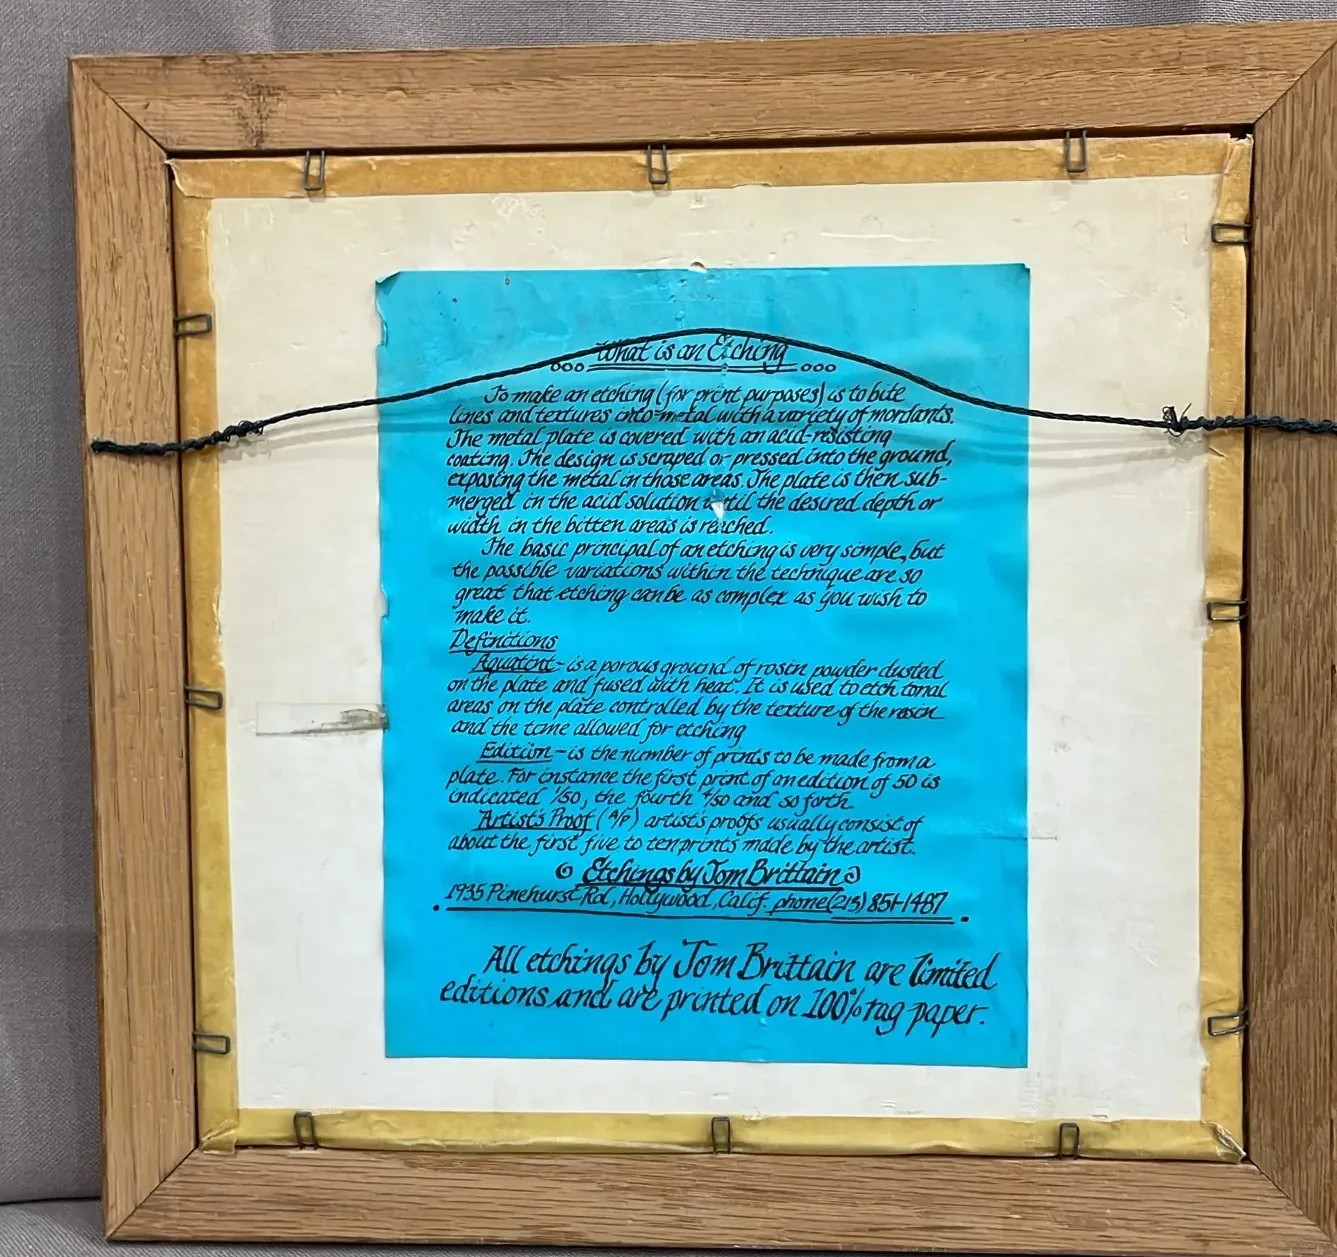 What is an Etching
To make an etching (for print purposes) is to bite
lines and textures into metal with a variety of mordants.
The metal plate is covered with an acid-resisting
coating. The design is scraped or pressed into the ground,
exposing the metal in those areas. The plate is then sub-
merged in the acid solution until the desired depth or
width in the bitten areas is reached.
The basic principal of an etching is very simple, but
the possible variations within the technique are so
great that etching can be as complex as you wish to
make it.
Definitions
Aquatint - is a porous ground of rosin powder dusted
on the plate and fused with heat. It is used to etch tonal
areas on the plate controlled by the texture of the rosin
and the time allowed for etching
Edition - is the number of prints to be made from a
plate. For instance the first print of an edition of 50 is
indicated 1/50, the fourth 4/50 and so forth.
Artist's Proof (A/P) artist's proofs usually consist of
about the first five to ten prints made by the artist.
Etchings by Tom Brittain
1935 Pinehurst Rd., Hollywood, Calif. phone (213) 851-1487
All etchings by Tom Brittain are limited
editions and are printed on 100% rag paper.